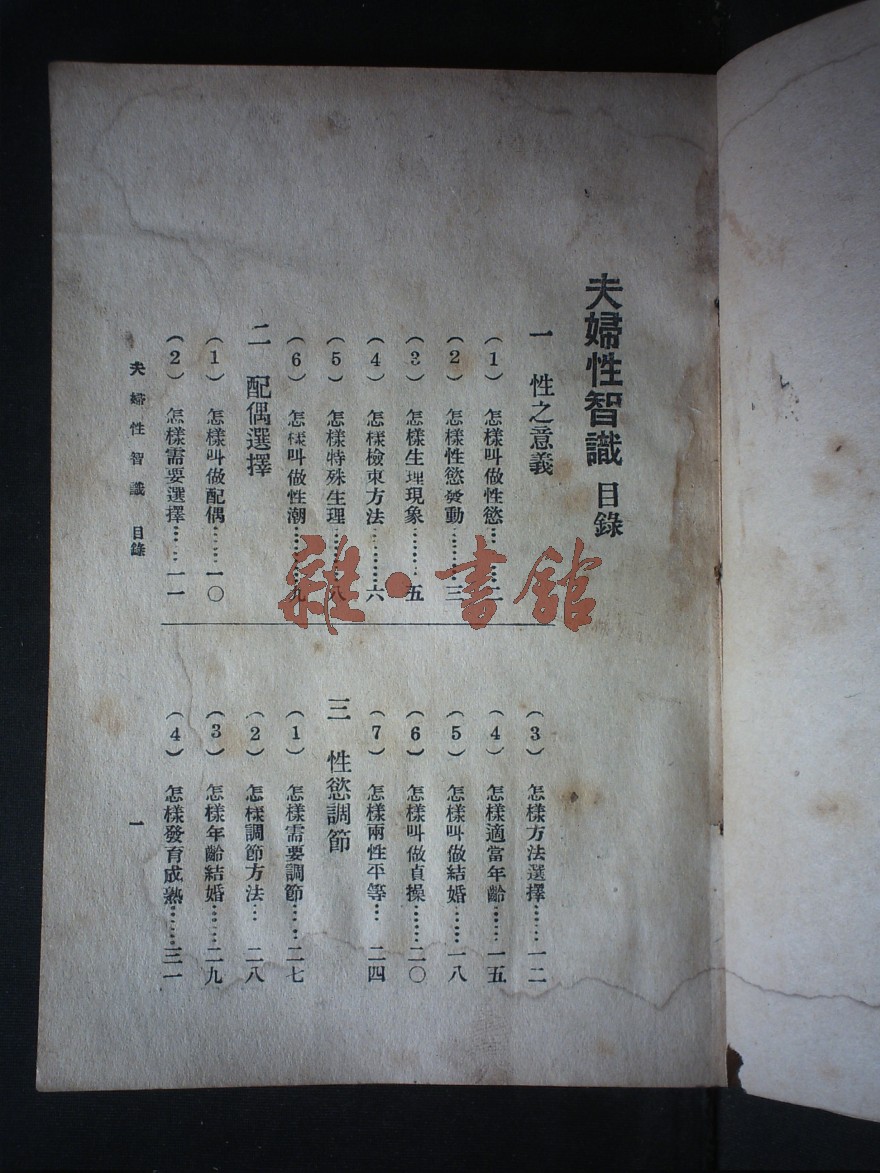 夫婦性智識 目錄
一 性之意義
（1） 怎樣叫做性慾………二
（2） 怎樣性慾發動………三
（3） 怎樣生理現象………五
（4） 怎樣檢束方法………六
（5） 怎樣特殊生理………八
（6） 怎樣叫做性潮………九
二 配偶選擇
（1） 怎樣叫做配偶………一〇
（2） 怎樣需要選擇………一一
（3） 怎樣方法選擇………一二
（4） 怎樣適當年齡………一五
（5） 怎樣叫做結婚………一八
（6） 怎樣叫做貞操………二〇
（7） 怎樣兩性平等…二四
三 性慾調節
（1） 怎樣需要調節……二七
（2） 怎樣調節方法…二八
（3） 怎樣年齡結婚……二九
（4） 怎樣發育成熟……三一
夫婦性智識 目錄
一
雜·書館